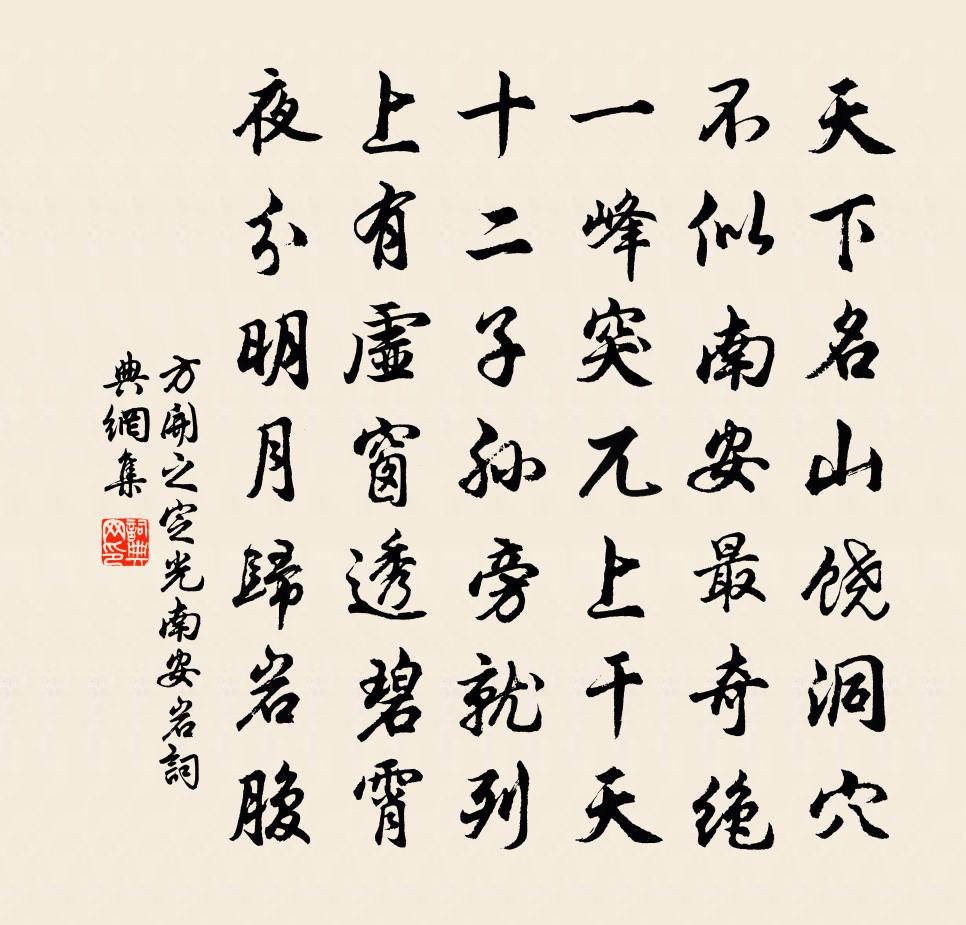 天下名山饶洞穴
不似南安最奇绝
一峰突兀上干天
十二子孙旁就列
上有虛窗透碧霄
夜分明月歸岩腹
方開之定光南安岩詞
典網集
詞典网印